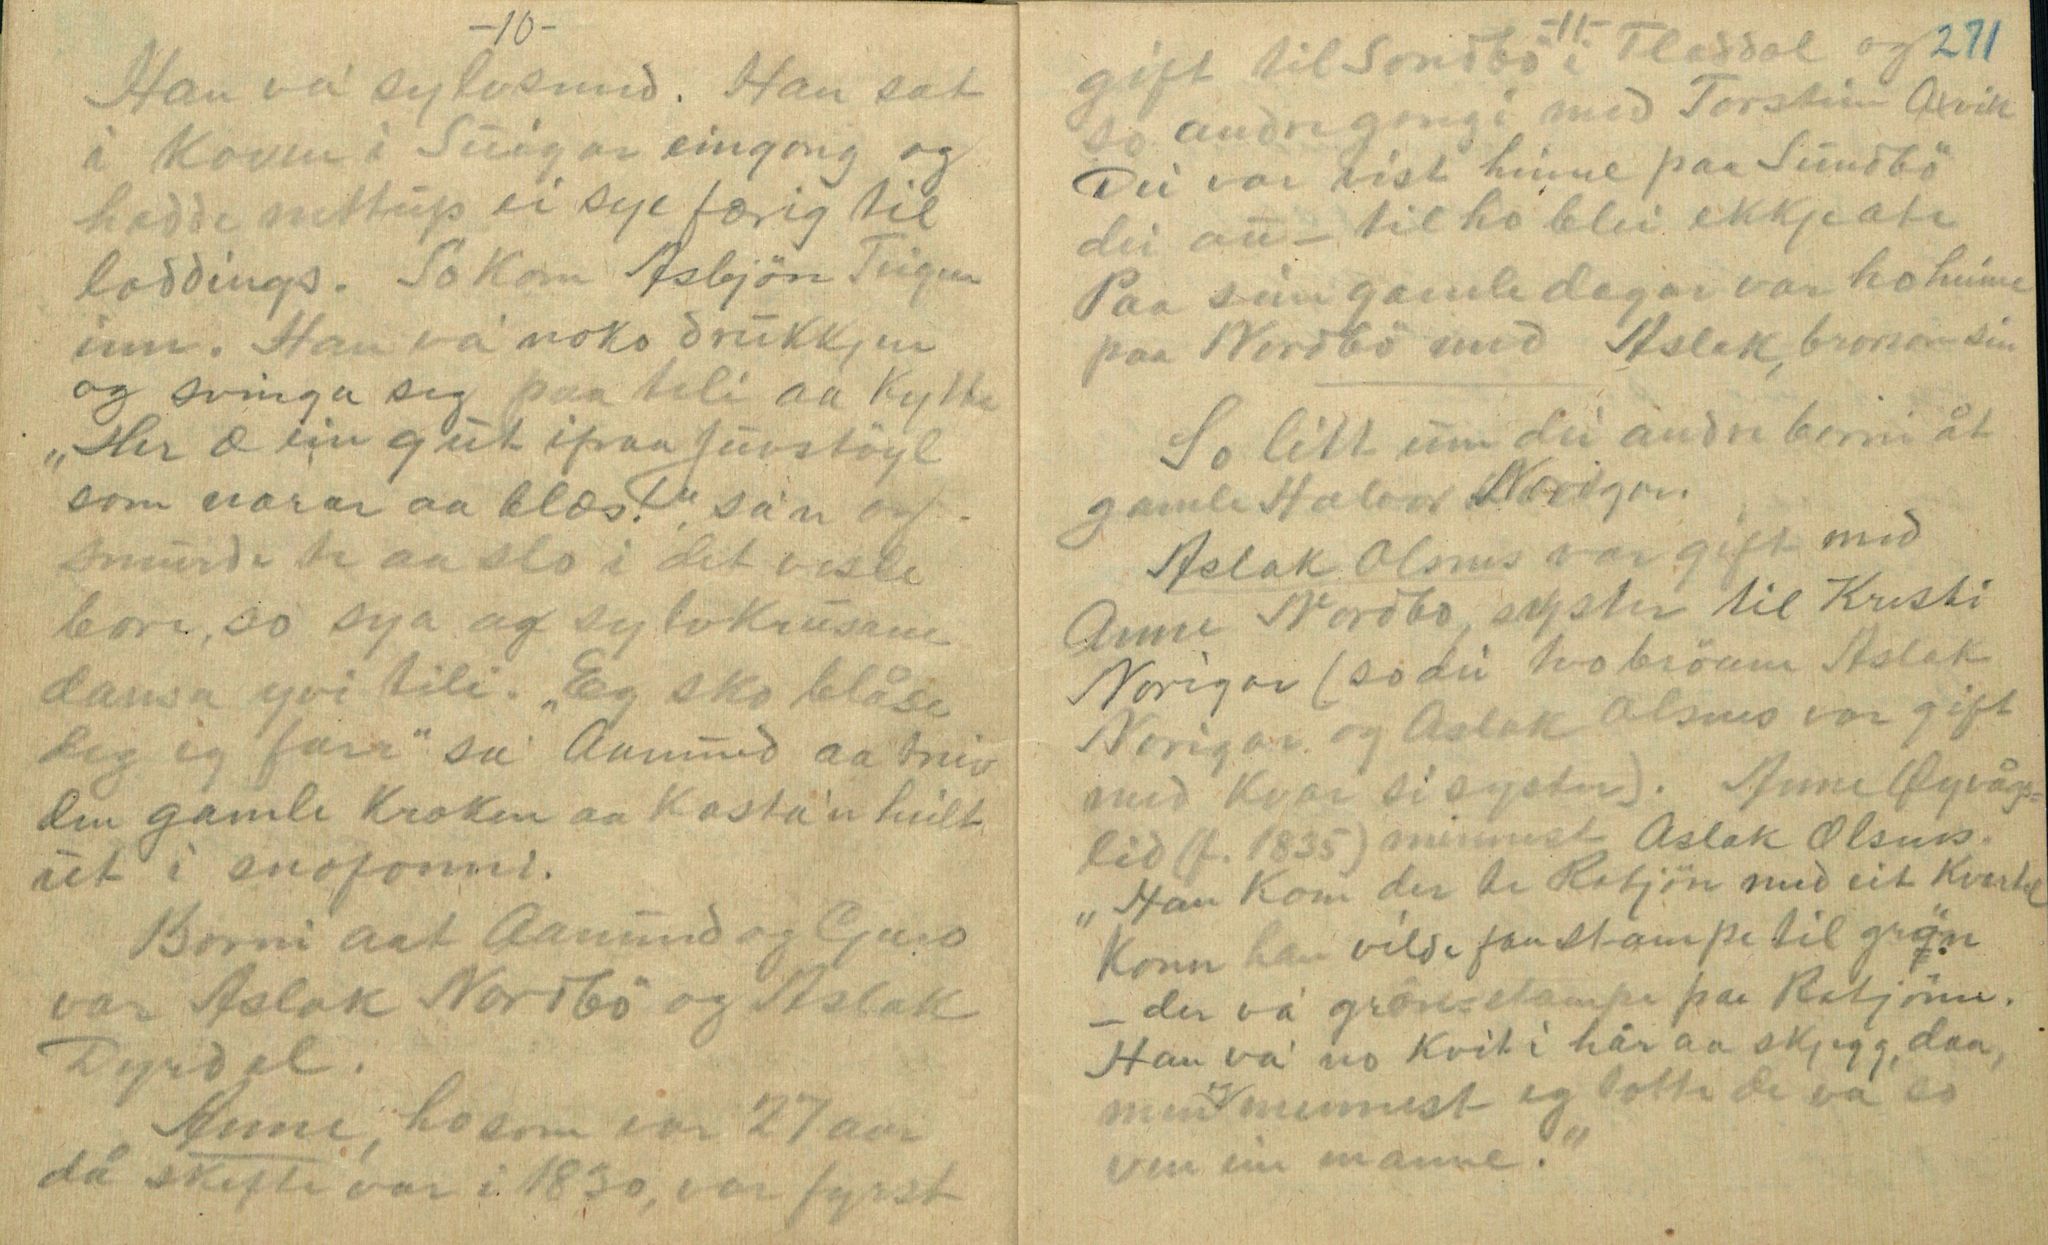 -10-
Han va sylvsmed. Han sat
i Koven i Suigar eingong og
hadde nettup ei sye færig til
loddings. So kom Asbjön Teigen
inn. Han va noko drukkjen
og svinga seg paa teli aa kytte
"Her æ ein gut ifraa Juvstöyl
som narar aa blæs!", sa'n og
smurde te aa slo i det vesle
bore, so sya og sylvkrusane
dansa yvi tili. "Eg sko blåse
deg eg farr" sa Aamund aa treiv
den gamle kroken aa kasta'n heilt
ut i snofonni.
Borni aat Aamund og Gjuro
var Aslak Nordbö og Aslak
Dyrdal.
Anne, ho som var 27 aar
då skifte var i 1830, var fyrst
-11-
271
gift til Sondbö i Fladdal og
so andre gongi med Torstein Axvik
Dei var vist heime paa Sundbö
dei au – til ho blei ekkje atte
Paa sine gamle dagar var ho heime
paa Nordbö med Aslak, brorson sin
So litt um dei andre borni åt
gamle Halvor Norigar.
Aslak Olsnes var gift med
Anne Nordbo, syster til Kristi
Norigar (so dei two bröane Aslak
Norigar og Aslak Olsnes var gift
med kvar si syster). Anne Øyvågs-
lid (f. 1835) minnest Aslak Olsnes.
"Han kom der te Rotjön med eit kvartel
Konn han vilde faa stampe til grön
– der va grönestampe paa Rotjönn.
Han va no kvit i hår aa skjegg, daa,
men eg mennest eg totte de va so
ven ein manne."